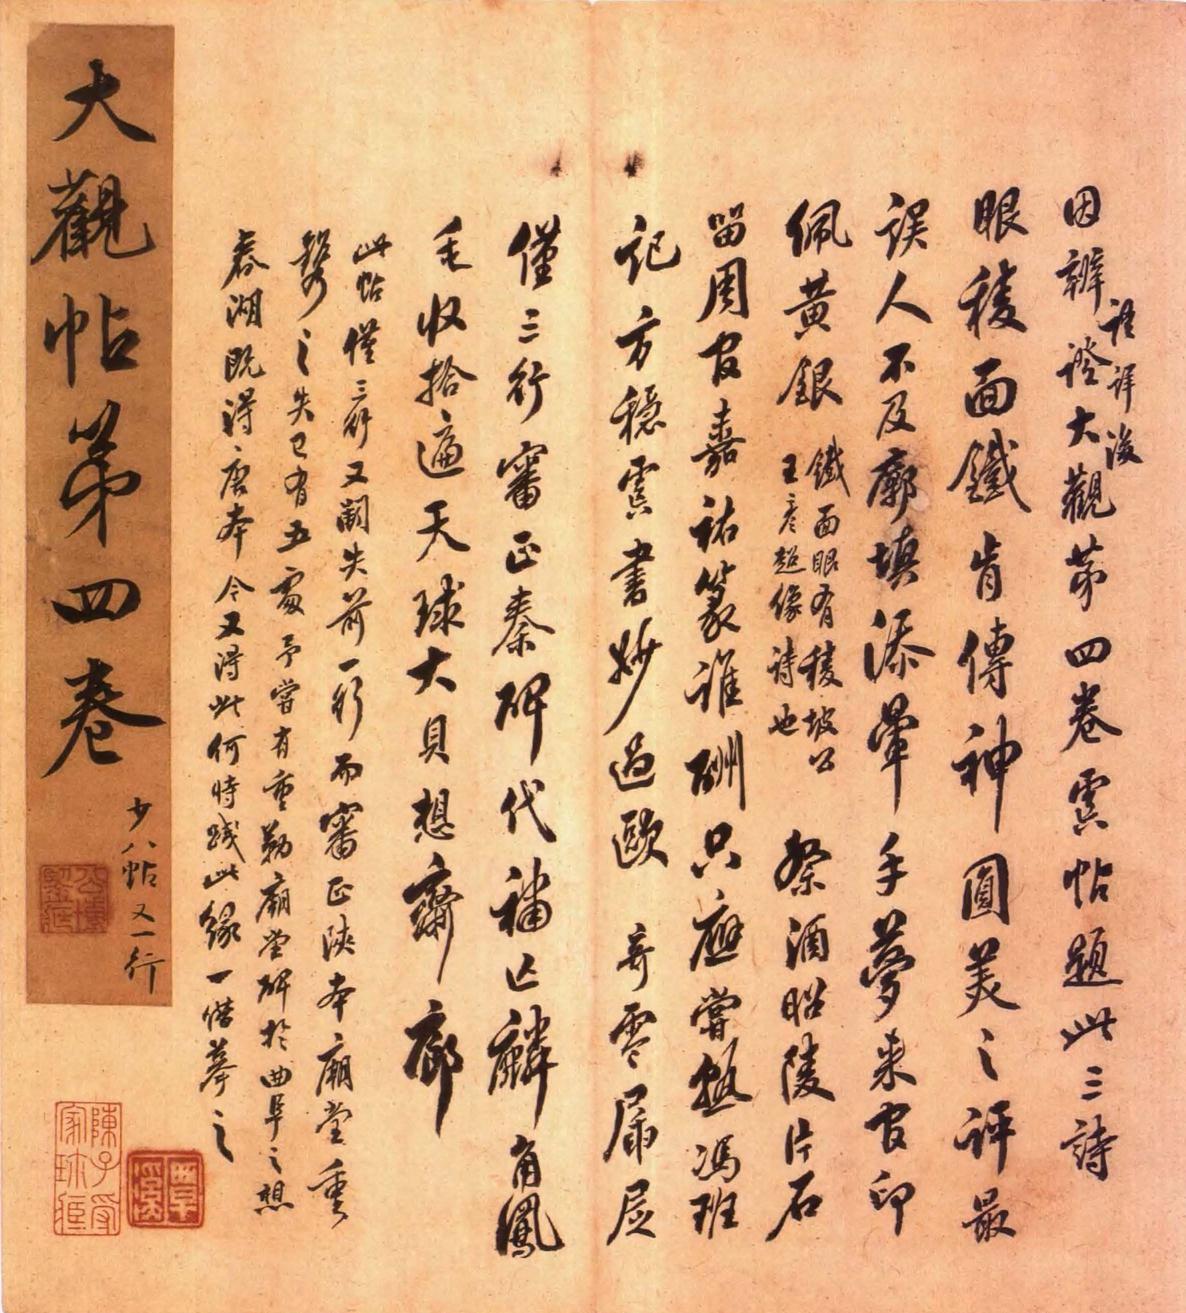 因辨證大觀第四卷虞帖題此三詩
詳後
眼稜面鐵肯傳神圓美之評最
誤人不及廓填添暈手夢來官印
佩黃銀
鐵面眼有稜坡公
王彥超像詩也
祭酒昭陵片石
留周官嘉祐篆誰酬只應嘗甑馮班
記方穩虞書妙過歐
奇零屬
僅三行審正秦碑代補亡麟角鳳
毛收拾遍天球大貝想齋廊
此帖僅三行又闕失前一行而審正陝本廟堂重
之失已有五處予嘗有重勒廟堂碑於曲阜之想
春湖既得唐本今又得此何時踐此緣一借摹之
大觀帖第四卷
少八帖又一行
陳子受家珍藏
覃溪